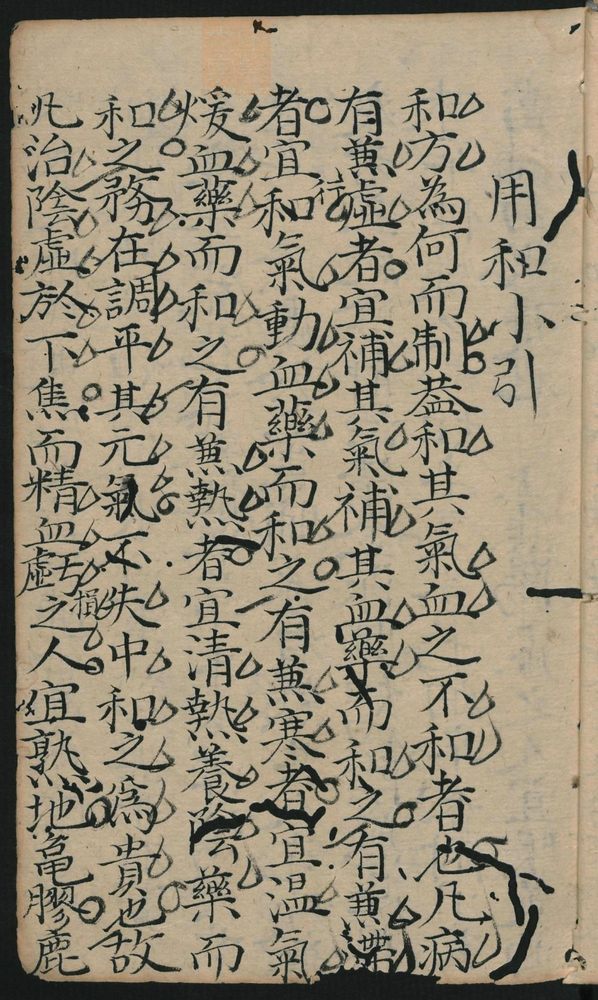 用和小引
和方為何而制葢和其氣血之不和者也凡病
有蒹虛者宜補其氣補其血藥而和之有蒹滯
者宜和行氣動血藥而和之有蒹寒者宜温氣
煖血藥而和之有蒹熱者宜清熱養陰藥而
和之務在調平其元氣不失中和之為貴也故
凡治陰虛於下焦而精血虧損之人宜熟地黿膠鹿